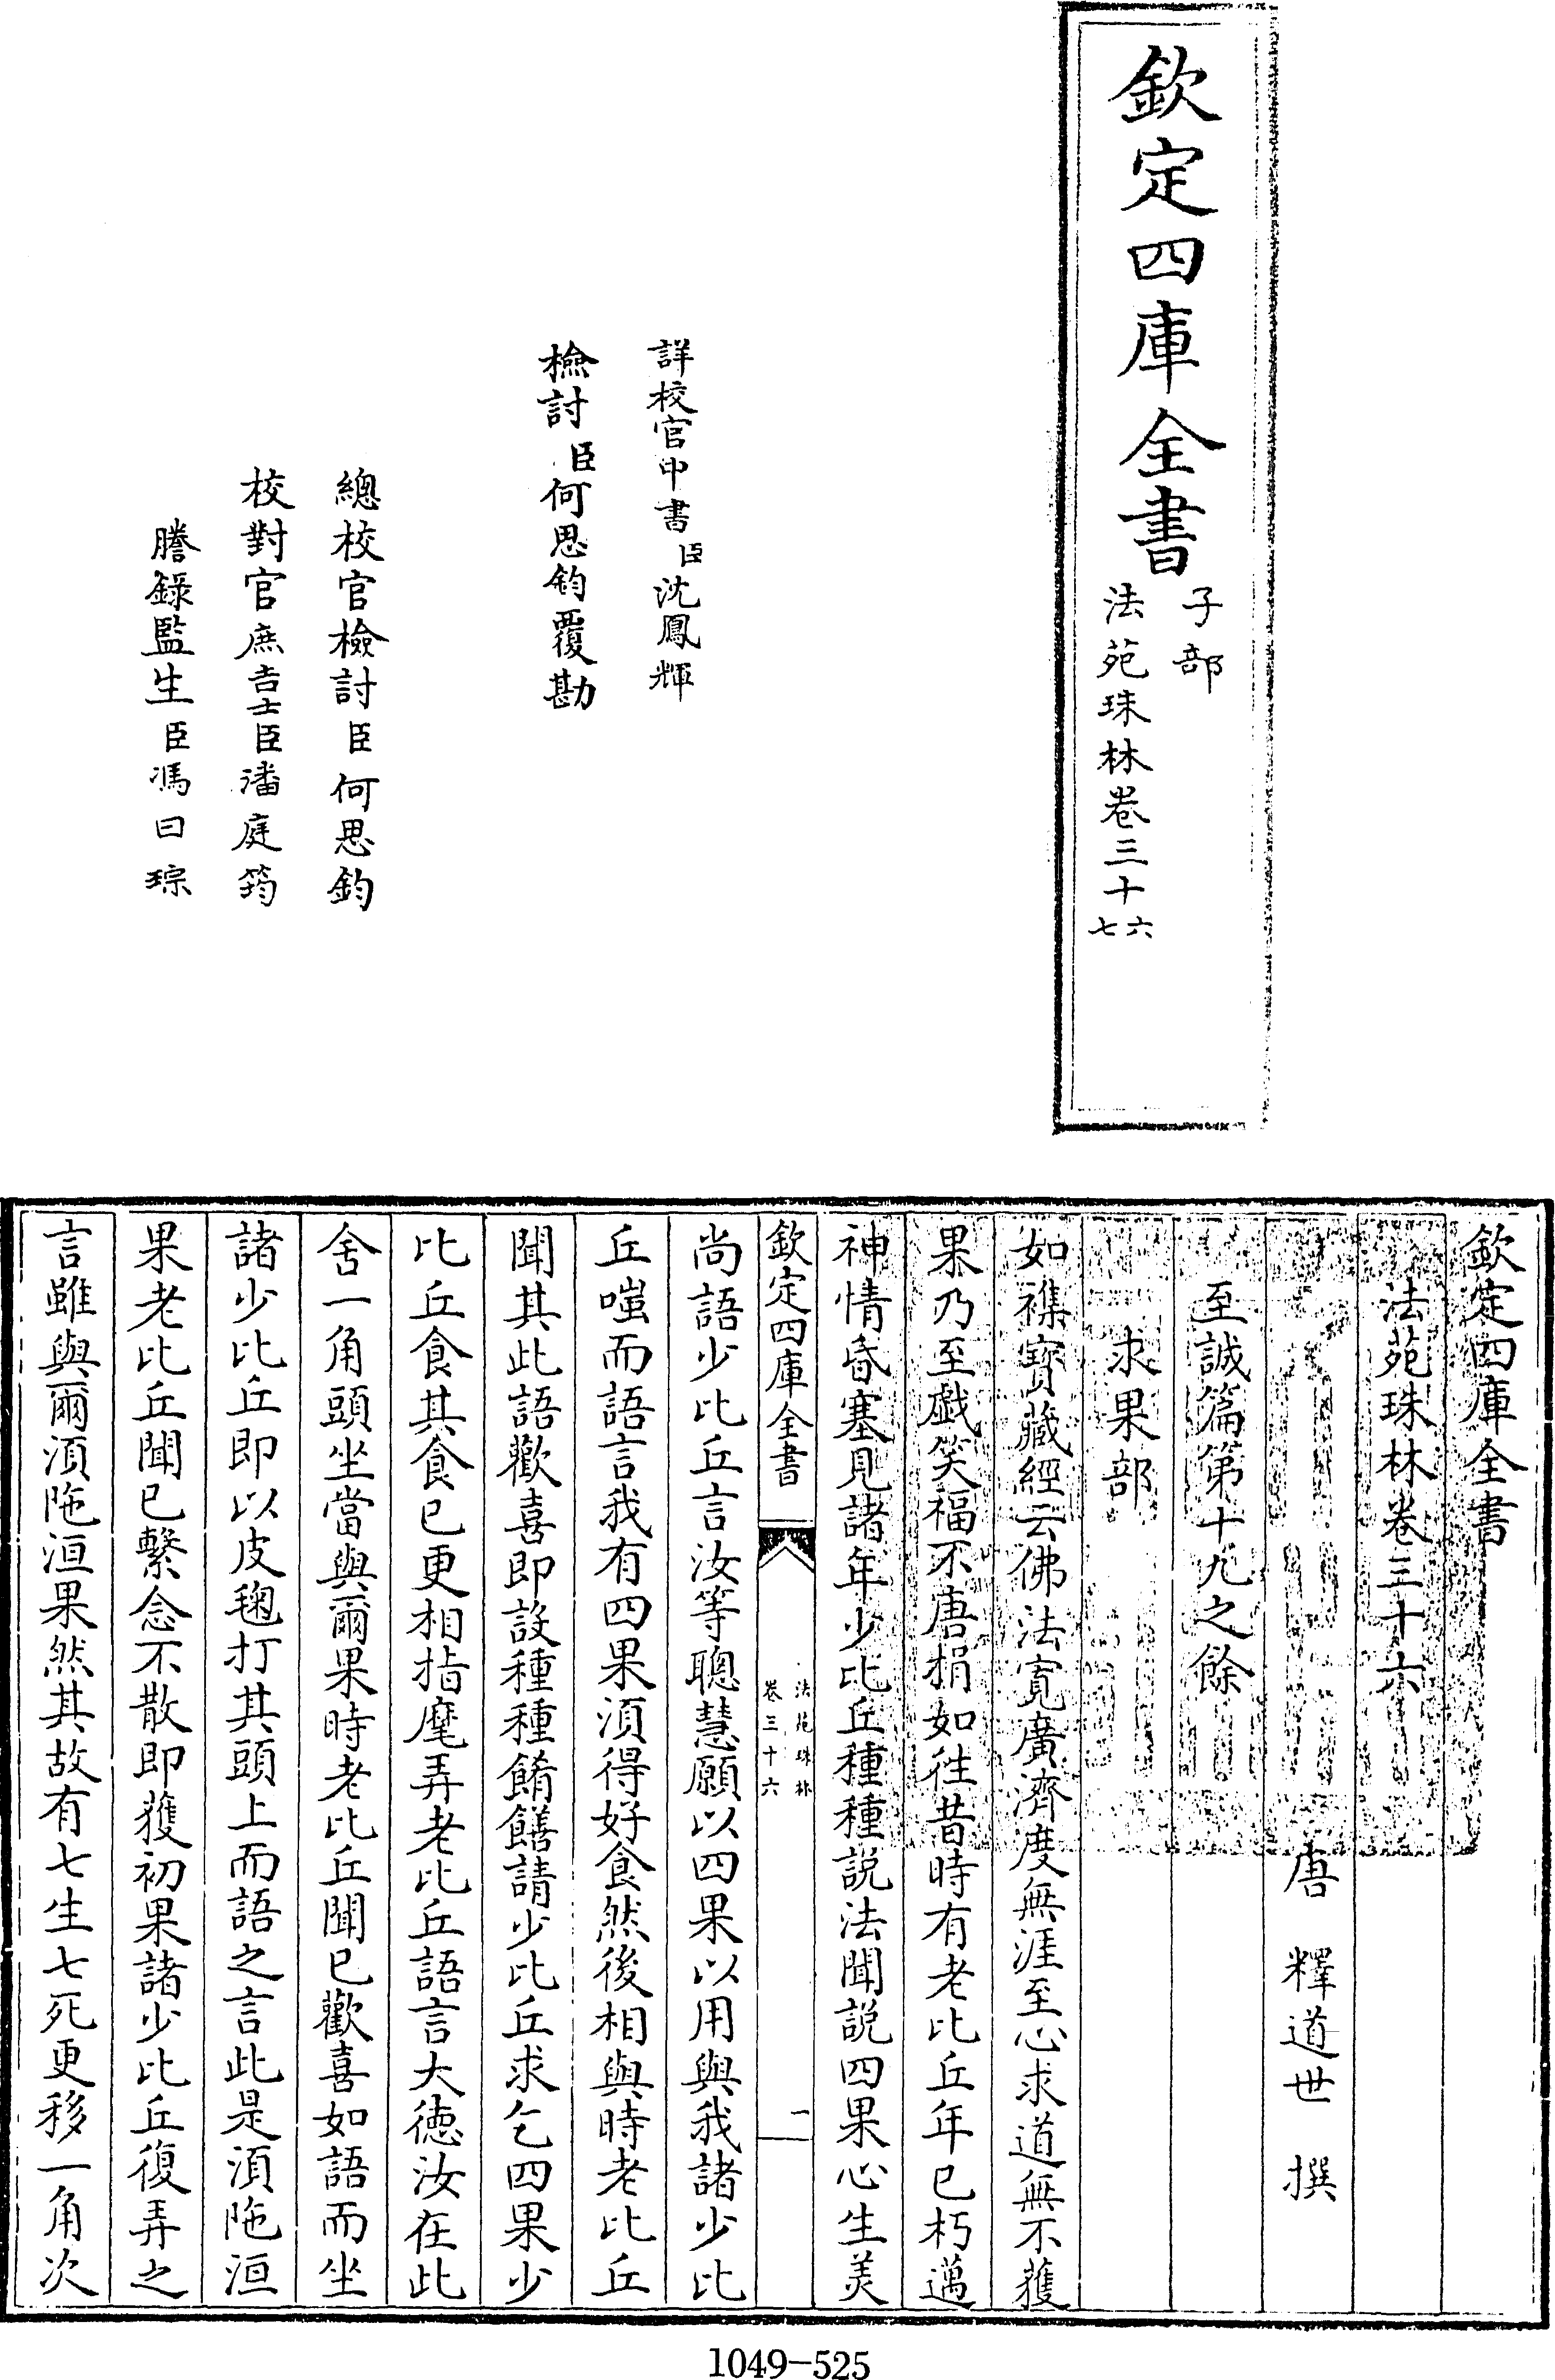 欽定四庫全書
子部
法苑珠林卷三十六七
詳校官中書臣沈鳳輝
檢討臣何思鈞覆勘
總校官檢討臣何思鈞
校對官庶吉士臣潘庭筠
謄錄監生臣馮日琮
欽定四庫全書
法苑珠林卷三十六
唐 釋道世 撰
至誠篇第十九之餘
求果部
如襍寳藏經云佛法寛廣濟度無涯至心求道無不獲
果乃至戯笑福不唐捐如徃昔時有老比丘年已朽邁
神情昏塞見諸年少比丘種種説法聞説四果心生羙
欽定四庫全書
法苑珠林
卷三十六
一
尚語少比丘言汝等聰慧願以四果以用與我諸少比
丘嗤而語言我有四果湏得好食然後相與時老比丘
聞其此語歡喜即設種種餚饍請少比丘求乞四果少
比丘食其食已更相指麾弄老比丘語言大徳汝在此
舍一角頭坐當與爾果時老比丘聞已歡喜如語而坐
諸少比丘即以皮毱打其頭上而語之言此是湏陁洹
果老比丘聞已繫念不散即獲初果諸少比丘復弄之
言雖與爾湏陁洹果然其故有七生七死更移一角次
1049-525